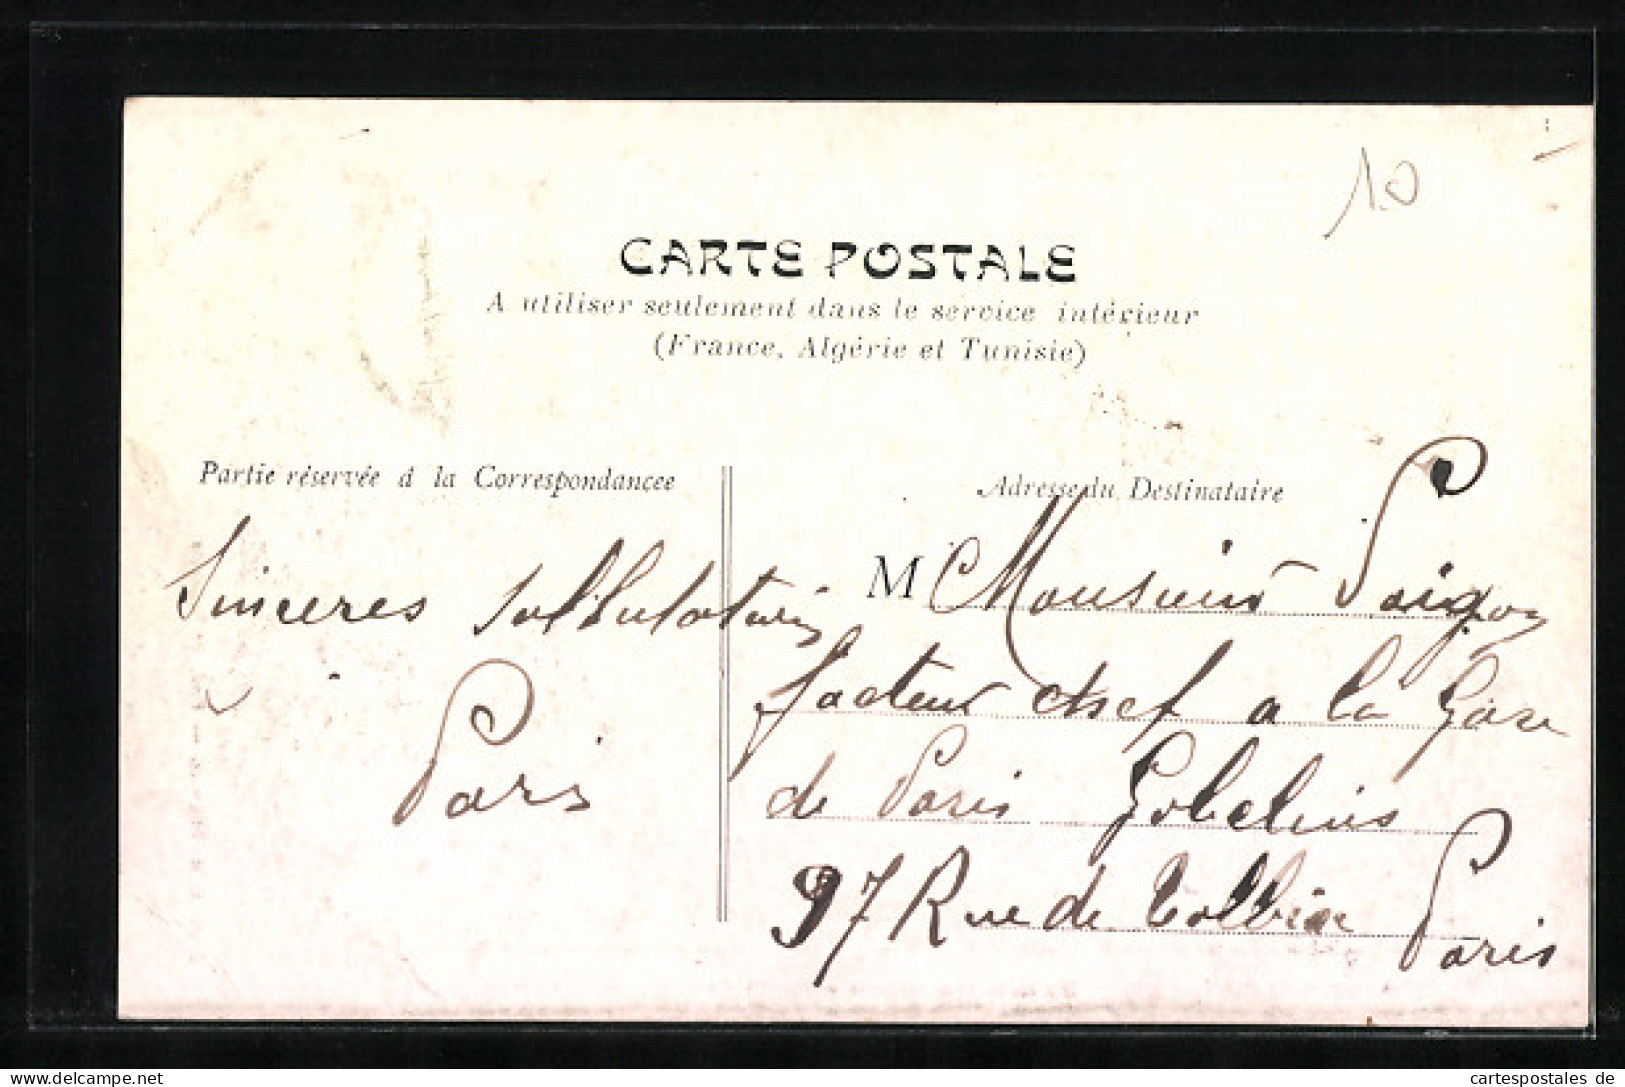 10
CARTE POSTALE
A utiliser seulement dans le service intérieur
(France, Algérie et Tunisie)
Partie réservée à la Correspondancee
Sinceres
Paris
Adresse du Destinataire
M Monsieur
facteur chef a la Gare
de Paris Gobelins
97 Rue de Tolbiac Paris
delcampe.net
cartespostales de